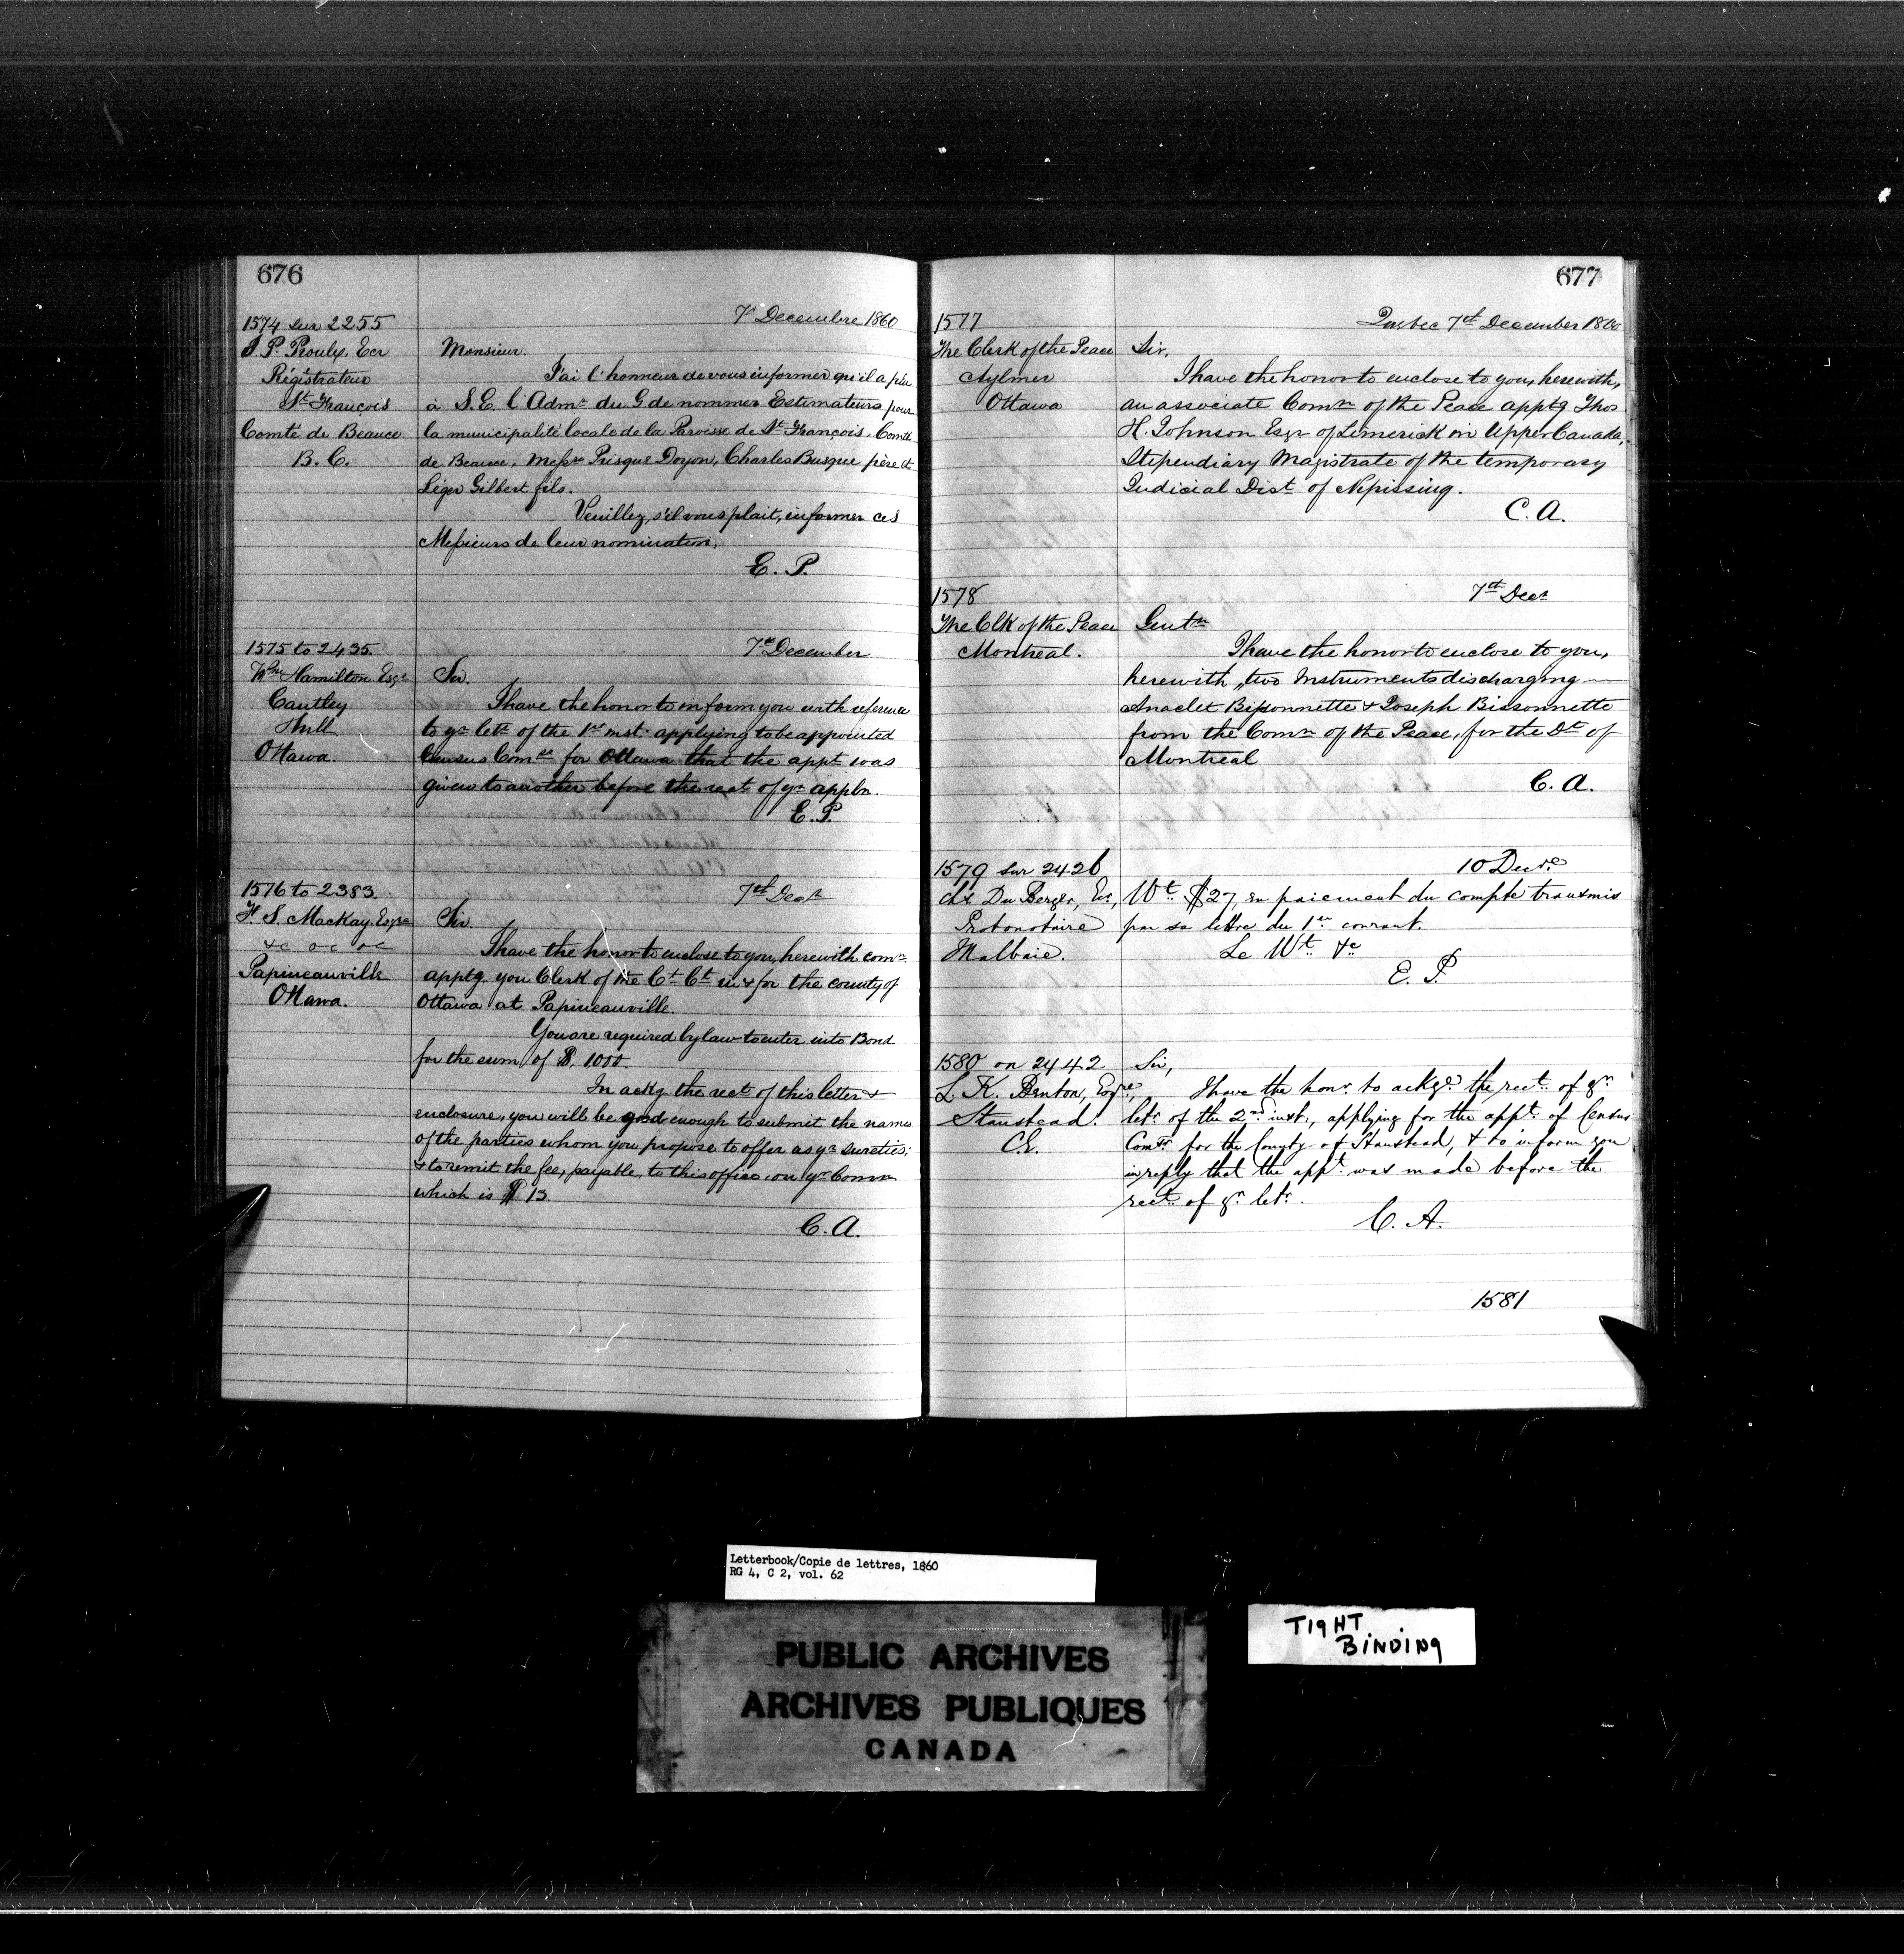 676
7 Decembre 1860
1574 sur 2255
J. P. Proulx, Ecr
Régistrateur
St François
Comté de Beauce
B. C.
Monsieur.
J'ai l'honneur de vous informer qu'il a plu
à S. E. l'Admr du G de nommer Estimateurs pour
la municipalité locale de la Paroisse de St François, Comté
de Beauce, Messrs Prisque Doyon, Charles Busque père et
Léger Gilbert fils.
Veuillez, s'il vous plait, informer ces
Messieurs de leur nomination.
E. P.
1575 to 2435
7th December
Wm Hamilton Esqr
Cantley
Hull
Ottawa.
Sir.
I have the honor to inform you with reference
to yr letr of the 1st inst. applying to be appointed
Census Comr for Ottawa that the appt was
given to another before the rect of yr appln.
E. P.
1576 to 2383.
7th Decr
H. S. MacKay, Esqre
&c &c &c
Papineauville
Ottawa.
Sir.
I have the honor to enclose to you, herewith comn
apptg. you Clerk of the Ct Ct in & for the county of
Ottawa at Papineauville.
You are required by law to enter into Bond
for the sum of $ 1000.
In ackg the rect of this letter &
enclosure, you will be good enough to submit the names
of the parties whom you propose to offer as yr sureties;
& to remit the fee, payable, to this office, on yr Comn
which is $ 13.
C. A.
677
1577
Quebec 7th December 1860
The Clerk of the Peace
Aylmer
Ottawa
Sir,
I have the honor to enclose to you, herewith,
an associate Comn of the Peace apptg Thos
H. Johnson Esqr of Limerick in Upper Canada,
Stipendiary Magistrate of the temporary
Judicial Dist. of Nipissing.
C. A.
1578
7th Decr
The Clk of the Peace
Montreal.
Gentn
I have the honor to enclose to you,
herewith, two Instruments discharging
Anaclet Bissonnette & Joseph Bissonnette
from the Comn of the Peace, for the Dt of
Montreal
C. A.
1579 sur 2426
10 Decre
Chs Du Berger, Ec,
Protonotaire
Malbaie.
Wt. $27, en paiement du compte transmis
par sa lettre du 1er courant.
Le Wt. &c
E. P.
1580 on 2442
L. K. Benton, Esqre,
Stanstead.
C.E.
Sir,
I have the honr. to ackge the rect. of yr
letr. of the 2nd inst., applying for the appt. of Census
Comr. for the County of Stanstead, & to inform you
in reply that the appt. was made before the
rect. of yr. letr.
C. A.
1581
Letterbook/Copie de lettres, 1860
RG 4, C 2, vol. 62
PUBLIC ARCHIVES
ARCHIVES PUBLIQUES
CANADA
TIGHT
BINDING